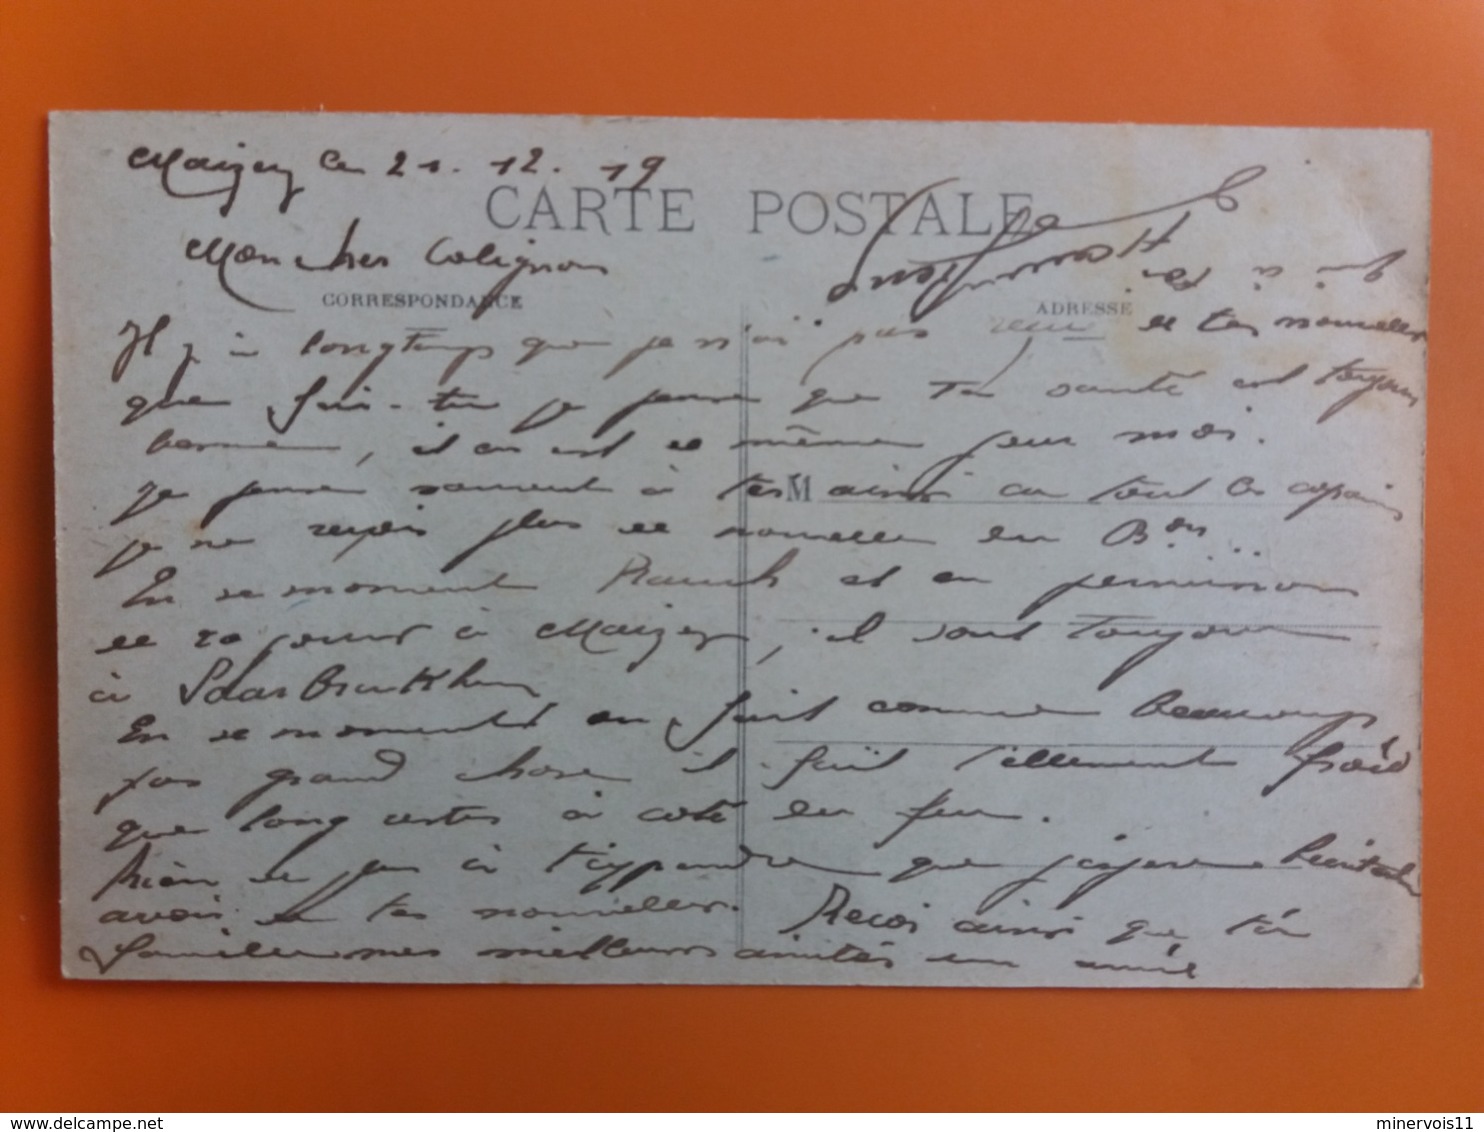 Maizey le 21. 12. 19
CARTE POSTALE
Mon cher Colignon
CORRESPONDANCE
ADRESSE
Il y a longtemps que je n'ai pas reçu de tes nouvelles
que fais-tu je pense que ta santé est toujours
bonne, il en est de même pour moi.
Je pense souvent à tes ainsi en tout les copains
M
je ne reçois plus de nouvelle du Bon...
En ce moment Rauch est en permission
de 20 jours à Maizey, il sont toujours
à
En ce moment on fait comme beaucoup
pas grand chose il fait tellement froid
que long restes à coté du feu.
Rien de plus à t'appendre que j'espere bientot
avoir de tes nouvelles. Recoi ainsi que ta
famille mes meilleurs amités un amié
www.delcampe.net
minervois11